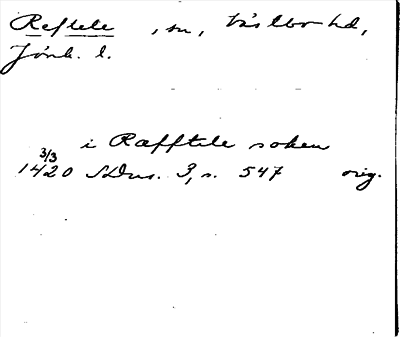 Reftele , sn, Västbo hd,
Jönk. l.
i Ræfftele soken
3/3
1420 SDns. 3, s. 547 orig.